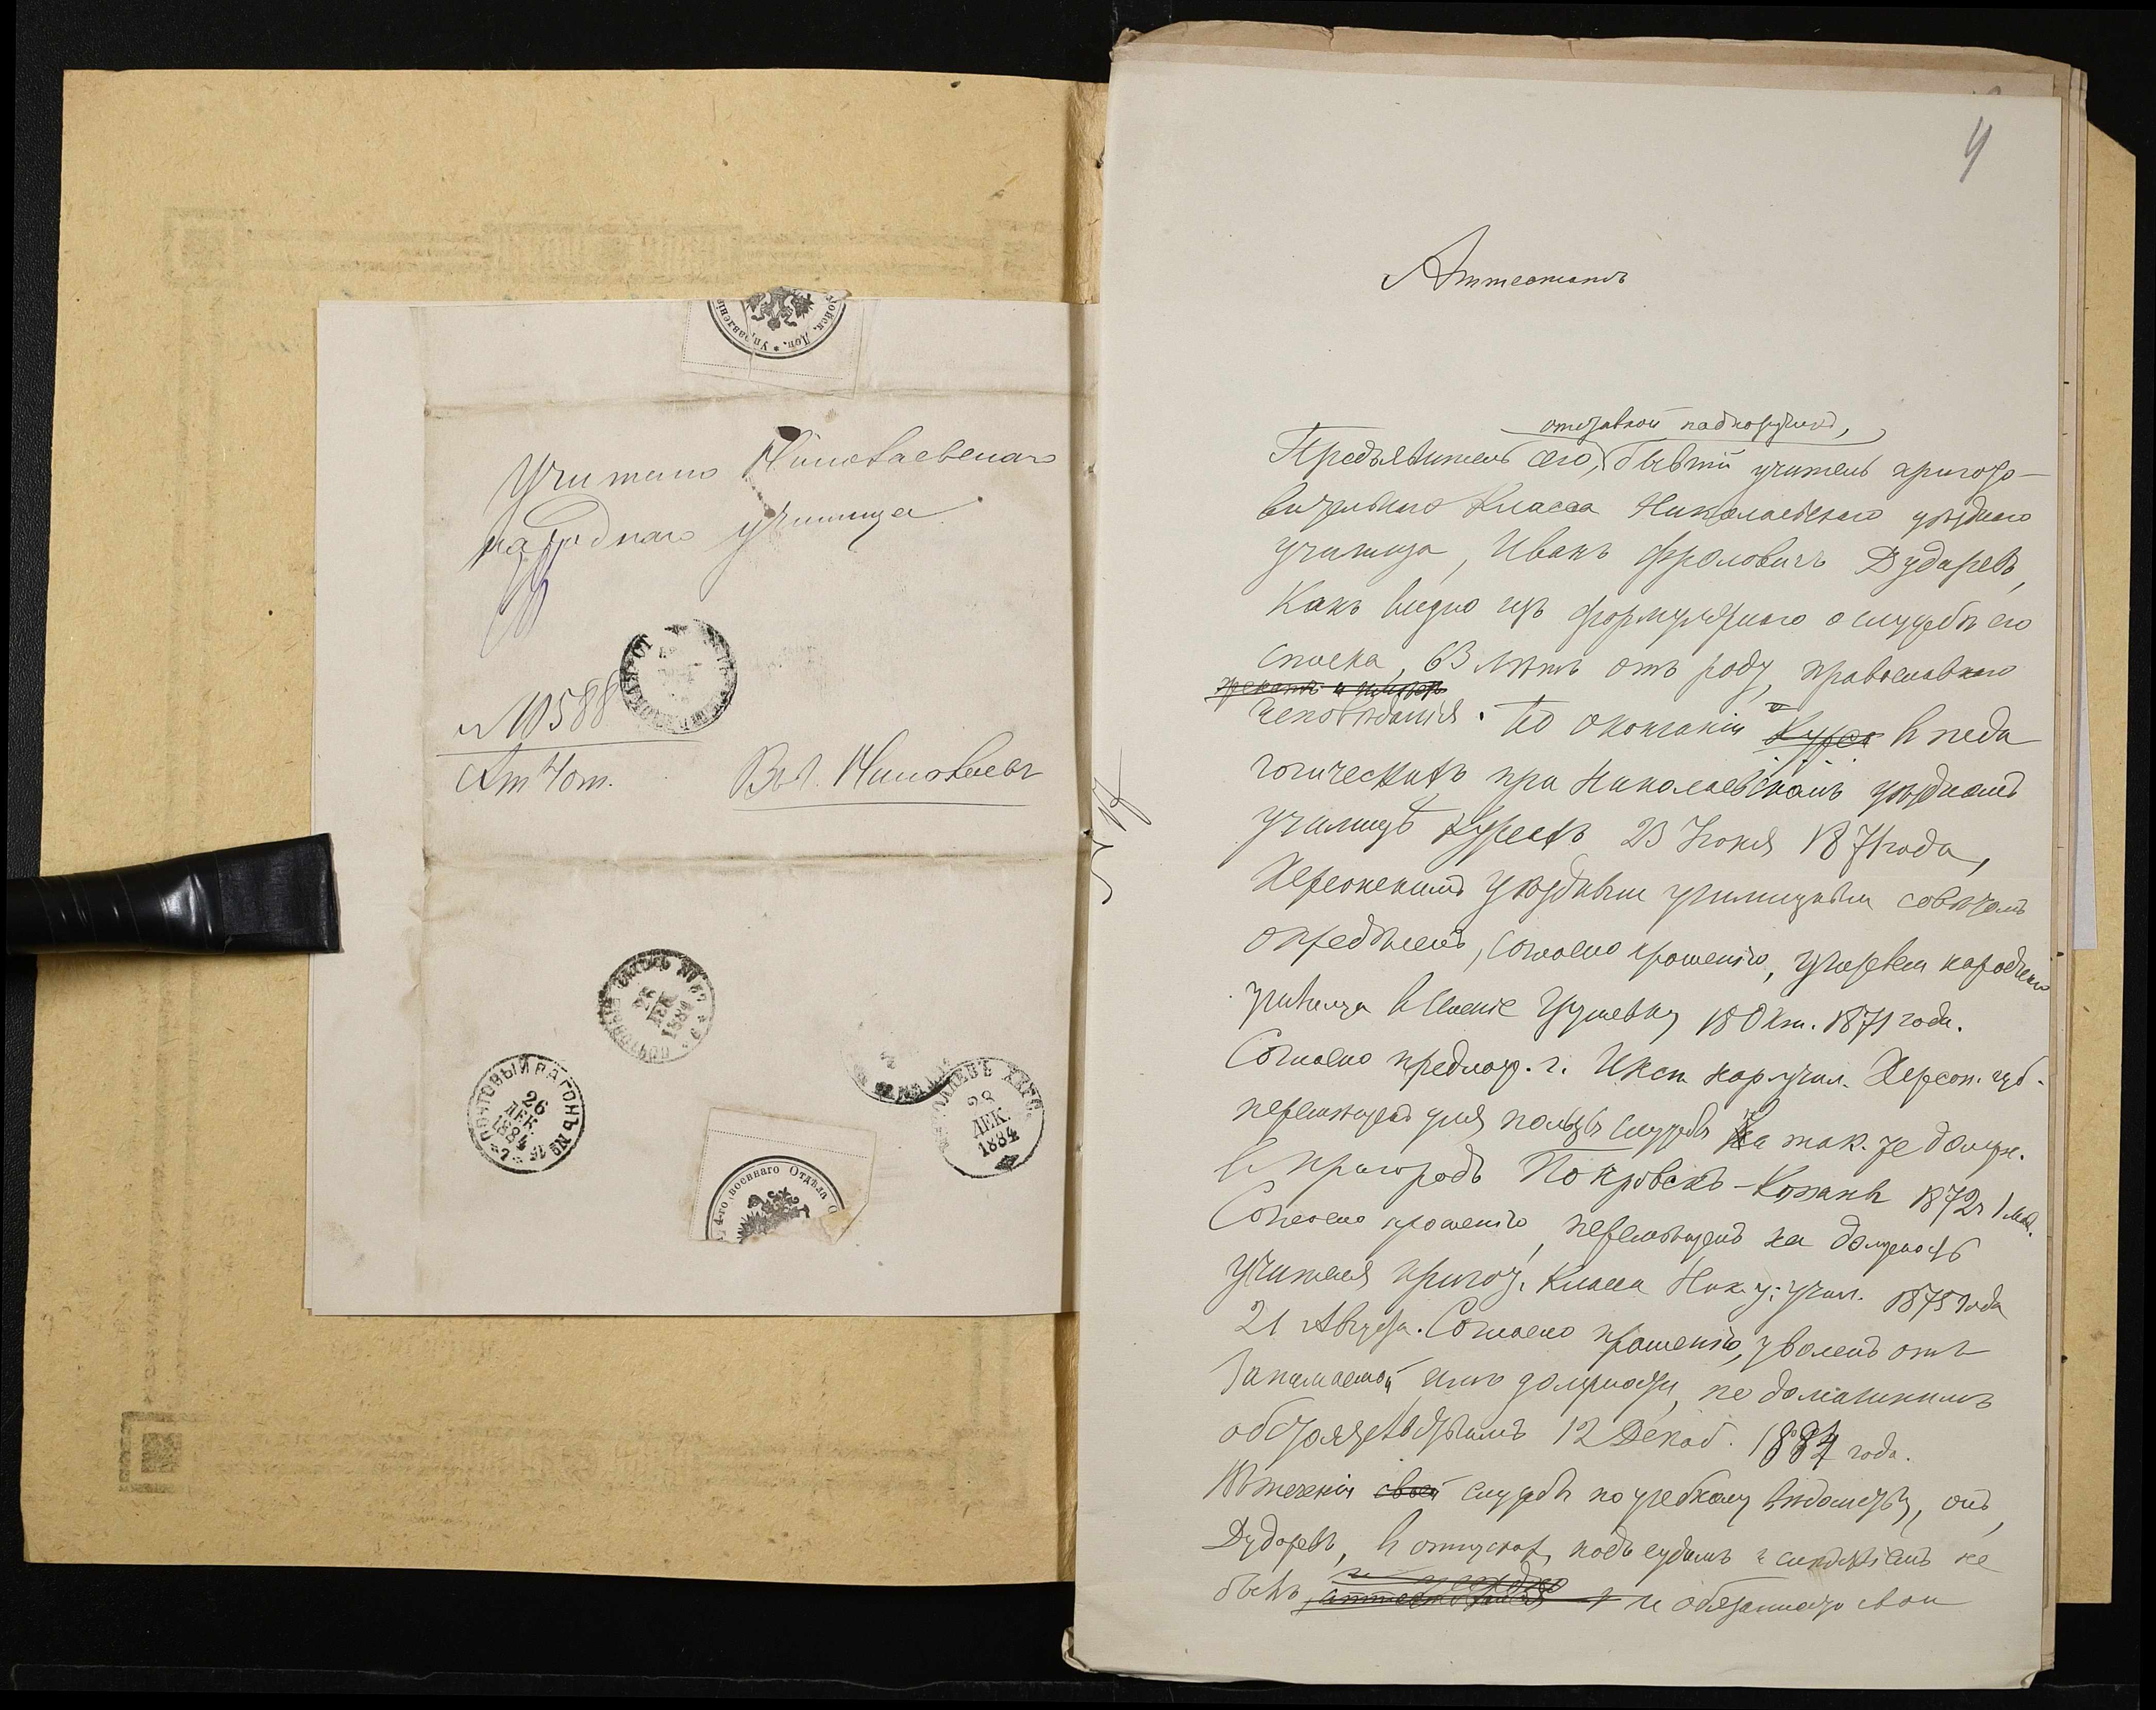 Войск. Дон. * Управленіе
Учителю Николаевскаго
народнаго училища
№ 10588
Въ г. Николаевъ
ПОЧТОВЫЙ ВАГОНЪ
26
ДЕК.
1884
ПОЧТОВЫЙ ВАГОНЪ №
26
ДЕК.
1884
НИКОЛАЕВЪ ХЕРС.
28
ДЕК.
1884
4-го военнаго Отдѣла
4
Аттестатъ
отставной подпоручикъ,
Предъявитель сего, бывшій учитель пригото-
вительнаго класса Николаевскаго уѣзднаго
училища, Иванъ Фроловичъ Дударевъ,
какъ видно изъ формулярнаго о службѣ его
списка, 63 лѣтъ отъ роду, православнаго
исповѣданія. По окончаніи курса въ педа
гогическихъ при Николаевскомъ уѣздномъ
училищѣ курсахъ 23 Іюня 1871 года,
Херсонскимъ уѣзднымъ училищнымъ совѣтомъ
опредѣленъ, согласно прошенію, учителемъ народнаго
училища в селеніе 18 Окт. 1871 года.
Согласно предлож. г. Инсп. нар. учил. Херсон. губ.
перемѣщенъ для пользы службы на так. же должн.
в пригородъ Покровскъ- 1872 г. 1 мая.
Согласно прошенію, перемѣщенъ на должность
учителя пригот. класса Ник. у. учил. 1875 года
21 Августа. Согласно прошенію, уволенъ отъ
занимаемой имъ должности, по домашнимъ
обстоятельствамъ 12 Декаб. 1884 года.
Въ теченіи своей службѣ по учебному вѣдомству, онъ,
Дударевъ, в отпускахъ, подъ судомъ и слѣдствіемъ не
былъ и обязанности свои